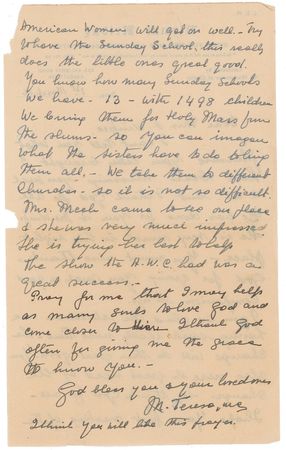 American Women will get on well. - Try
to have the Sunday School, this really
does the little ones great good.
You know how many Sunday Schools
we have - 13 - with 1498 children
We bring them for Holy Mass from
the slums - so you can imagen
what the sisters have to do to bring
them all. - We take them to different
Churches - so it is not so difficult.
Mrs. came to see our place
& she was very much impressed
She is trying her best to help
The show the A.W.C. had was a
great success. -
Pray for me that I may help
as many souls to love God and
come closer to Him. I thank God
often for giving me the grace
to know you. -
God bless you & your loved ones
M. Teresa, mc
I think you will like this prayer.